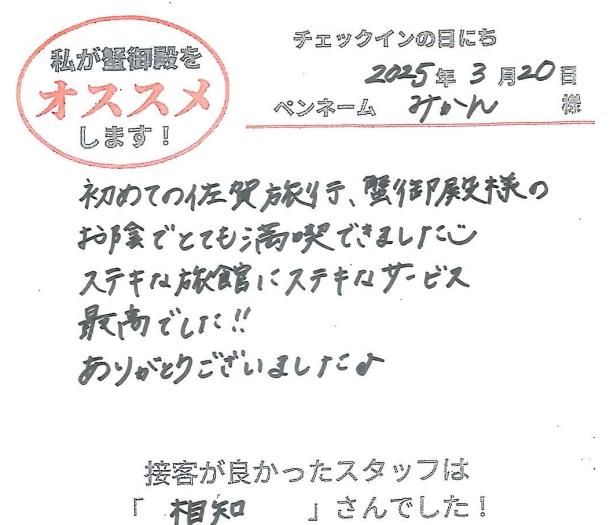 私が蟹御殿を
オススメ
します！
チェックインの日にち
2025年 3月20日
ペンネーム みかん 様
初めての佐賀旅行、蟹御殿様の
お陰でとても満喫できました
ステキな旅館にステキなサービス
最高でした!!
ありがとうございました♪
接客が良かったスタッフは
「 相知 」さんでした！